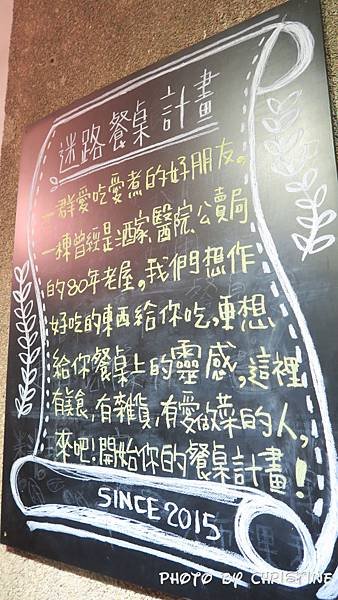 迷路餐桌計畫
一群愛吃愛煮的好朋友。
一棟曾經是酒家、醫院、公賣局
的80年老屋。我們想作
好吃的東西給你吃,更想
給你餐桌上的靈感,這裡
有美食,有雜貨,有愛做菜的人,
來吧!開始你的餐桌計畫!
SINCE 2015
PHOTO BY CHRISTINE